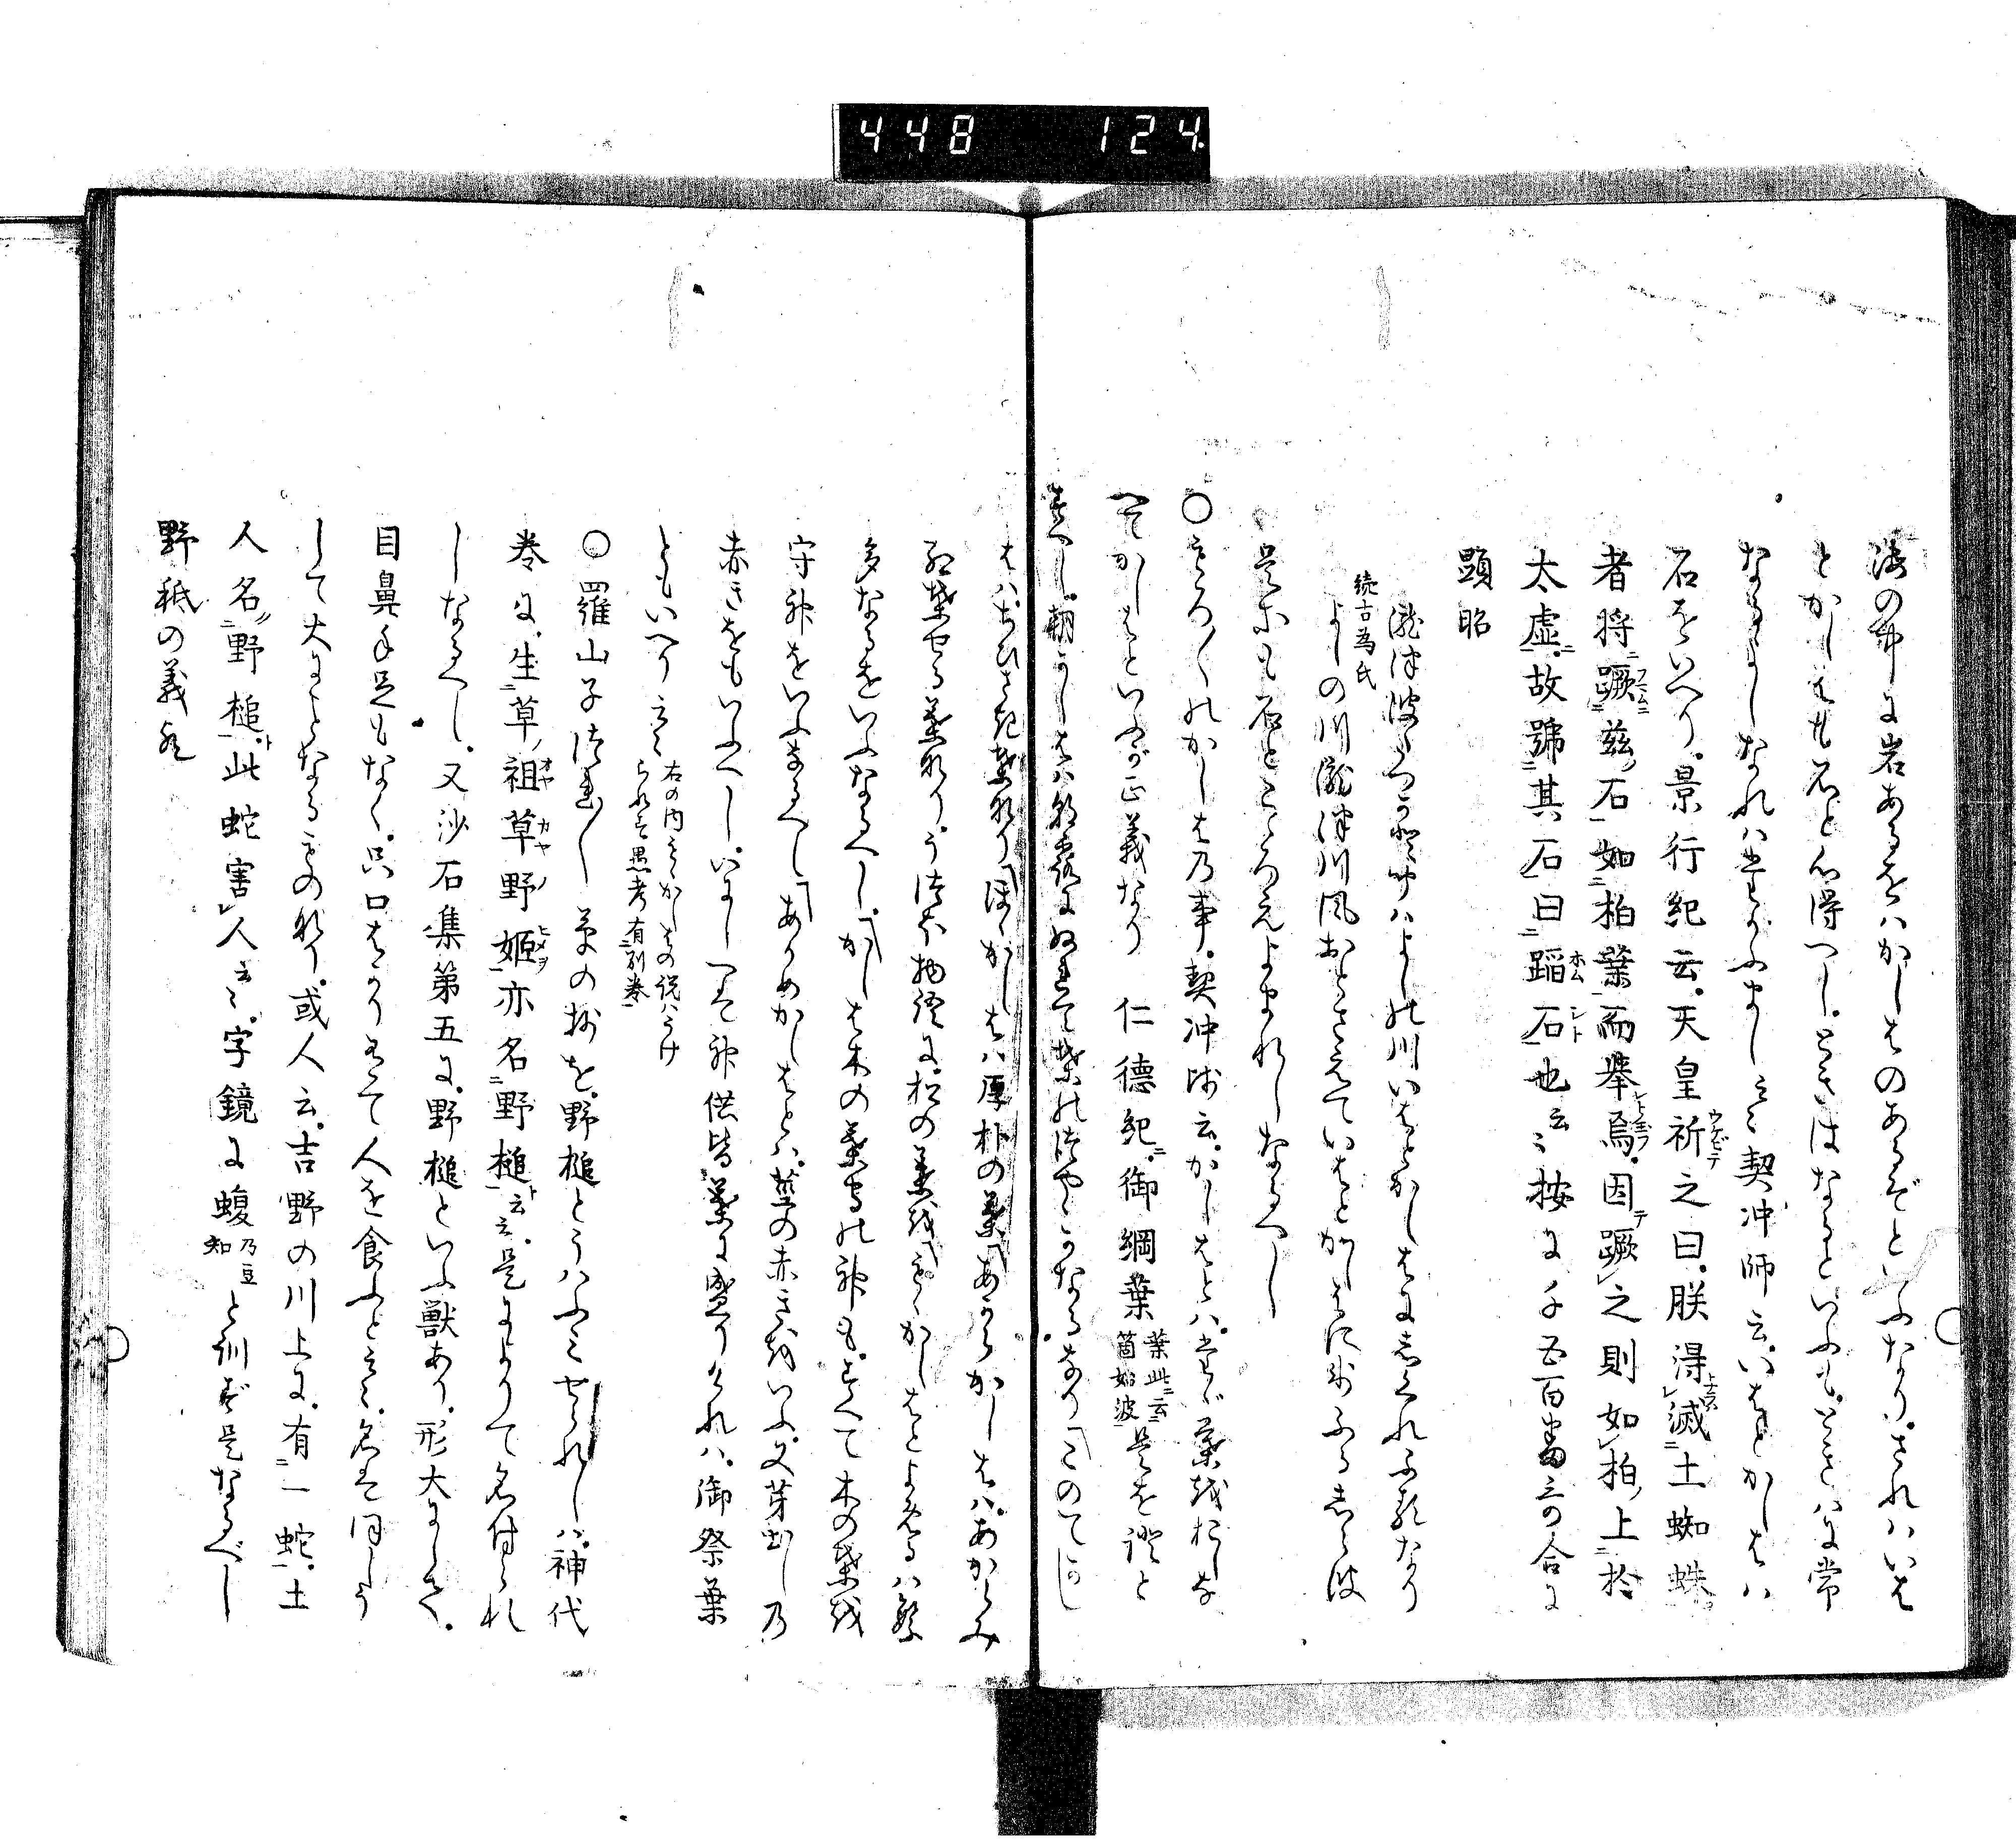 448 124
海の中に岩あるをはかしはのあるぞといふなり。されハいは
とかしはも石と心得へし。ときはなるといふも。ときハに常
なるよしなれハたがふまし云々 契沖師云。いはとかしはハ
石をいへり。景行紀云。天皇祈之曰。朕得滅土蜘蛛
者将蹶茲石如柏葉而舉焉。因蹶之則如柏上於
太虚。故號其石曰蹈石也云々 按に千五百番哥合に
顕昭
瀧津波 よし野川いはとかしはに
続古為氏
よしの川瀧津川風おとさえていはとかしはに ふるしら波
是等も石とこころえよまれしなるへし
○もろ〱のかしはの事。契冲师云。かしはとハ。たゝ葉をおしな
へてかしはといふが正義なり 仁徳紀。御綱葉 葉此云箇始波 是を證と
すへし。朝かしはハ朝露にぬれて葉のつやゝかなるなり「このてかし
はハ。ちひさき葉なり「ほゝかしはハ厚朴の葉「あからかしはハ。あからみ
紅葉せる葉なり。うつほ物語に。松の葉を かしはとよめるハ繁
多なるをいふなるへし。「かしは木の葉守の神も。すへて木の葉を
守神をいふなるへし「あからめかしはとハ。葉の赤きをいふ。又芽出しの
赤きをもいふへし。いにしへハ神供皆葉に盛りけれハ。御祭葉
ともいへり云々 右の内 かしはの説ハうけられす愚考有別巻
○羅山子徒然草の抄を。野槌とうハふミせられしハ。神代
巻に。生草祖草野姫亦名野槌云云。是によりて名付られ
しなるへし。又沙石集第五に。野槌といふ獣あり。形大にして。
目鼻手足もなく。只口はかりありて人を食ふと云々。名は同しう
して大にことなるものなり。或人云。吉野の川上に。有一蛇。土
人名野槌。此蛇害人云々。字鏡に蝮 乃豆知 と訓ず是なるべし
野祇の義